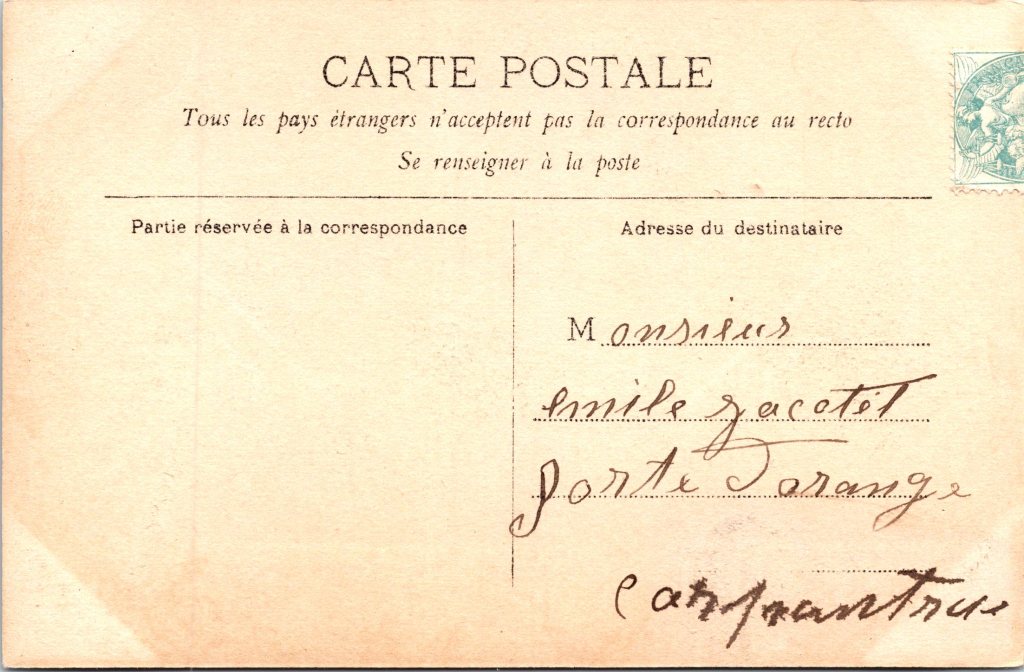 CARTE POSTALE
Tous les pays étrangers n'acceptent pas la correspondance au recto
Se renseigner à la poste
Partie réservée à la correspondance
Adresse du destinataire
Monsieur
emile
porte Dorange
Carpantras